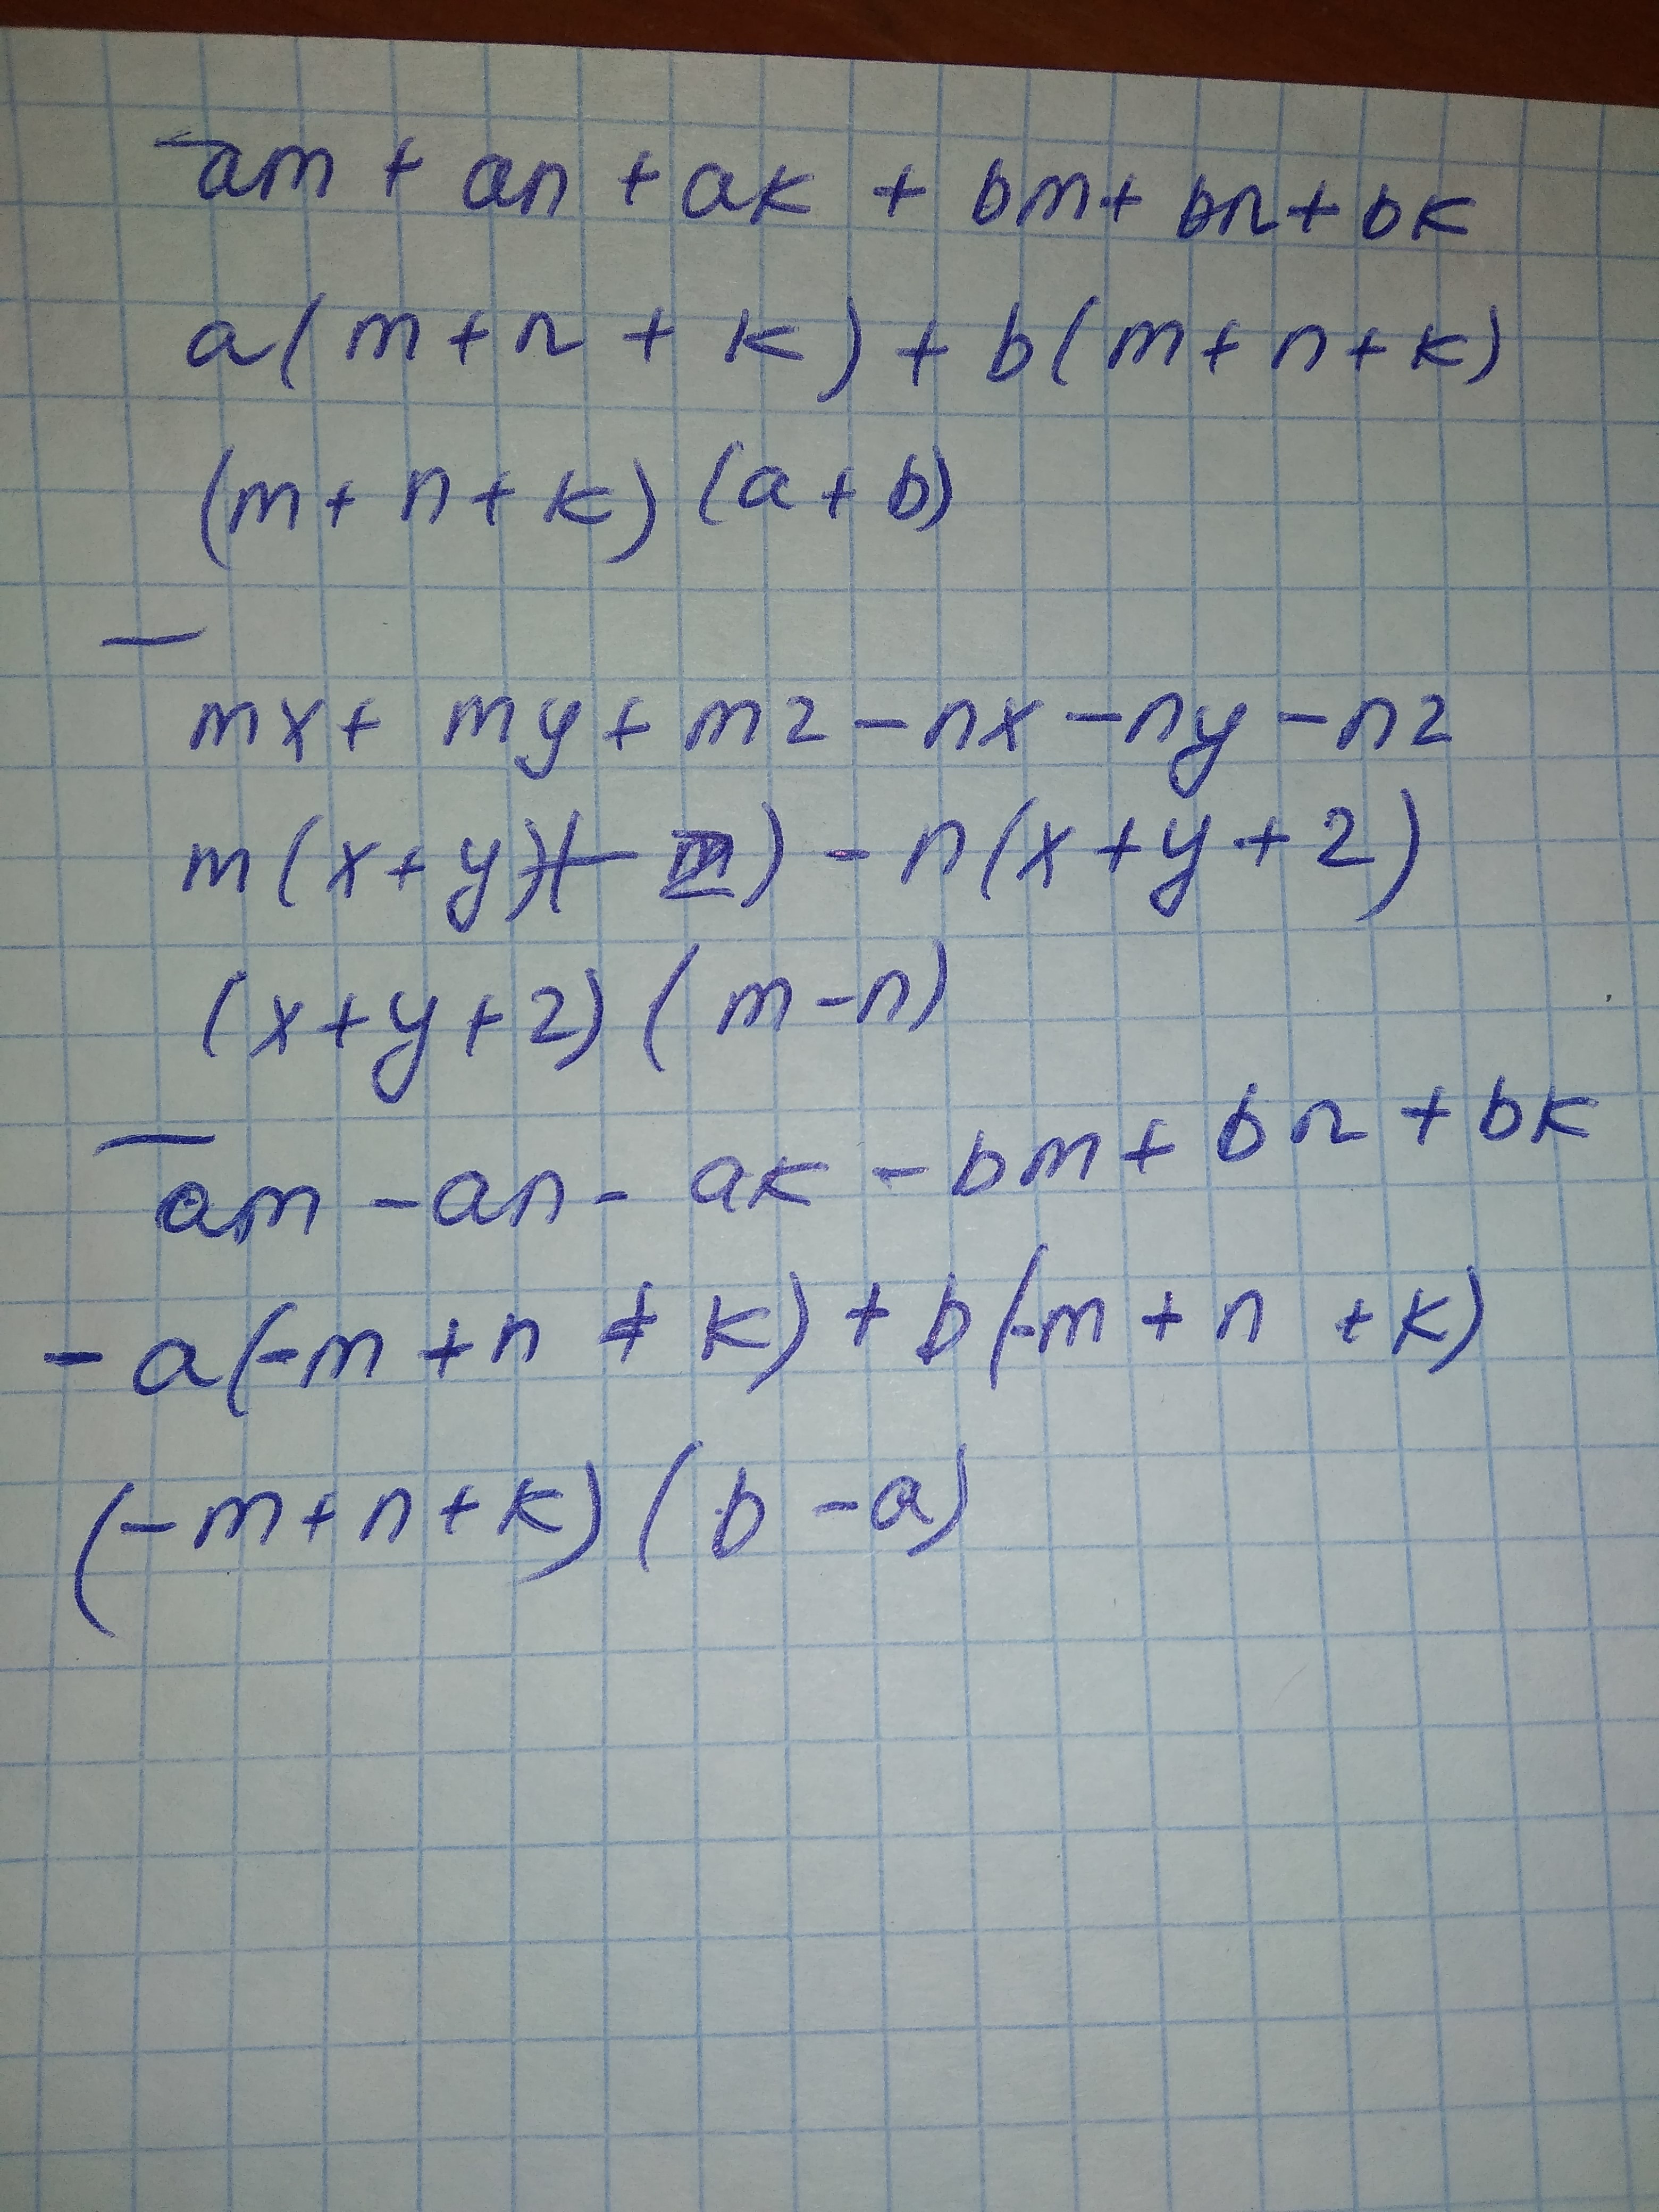 am + an + ak + bm + bn + bk
a(m + n + k) + b(m + n + k)
(m + n + k) (a + b)
—
mx + my + m2 - nx - ny - n2
m(x + y + 2) - n(x + y + 2)
(x + y + 2) (m - n)
—
am - an - ak - bm + bn + bk
- a(-m + n + k) + b(-m + n + k)
(-m + n + k) (b - a)